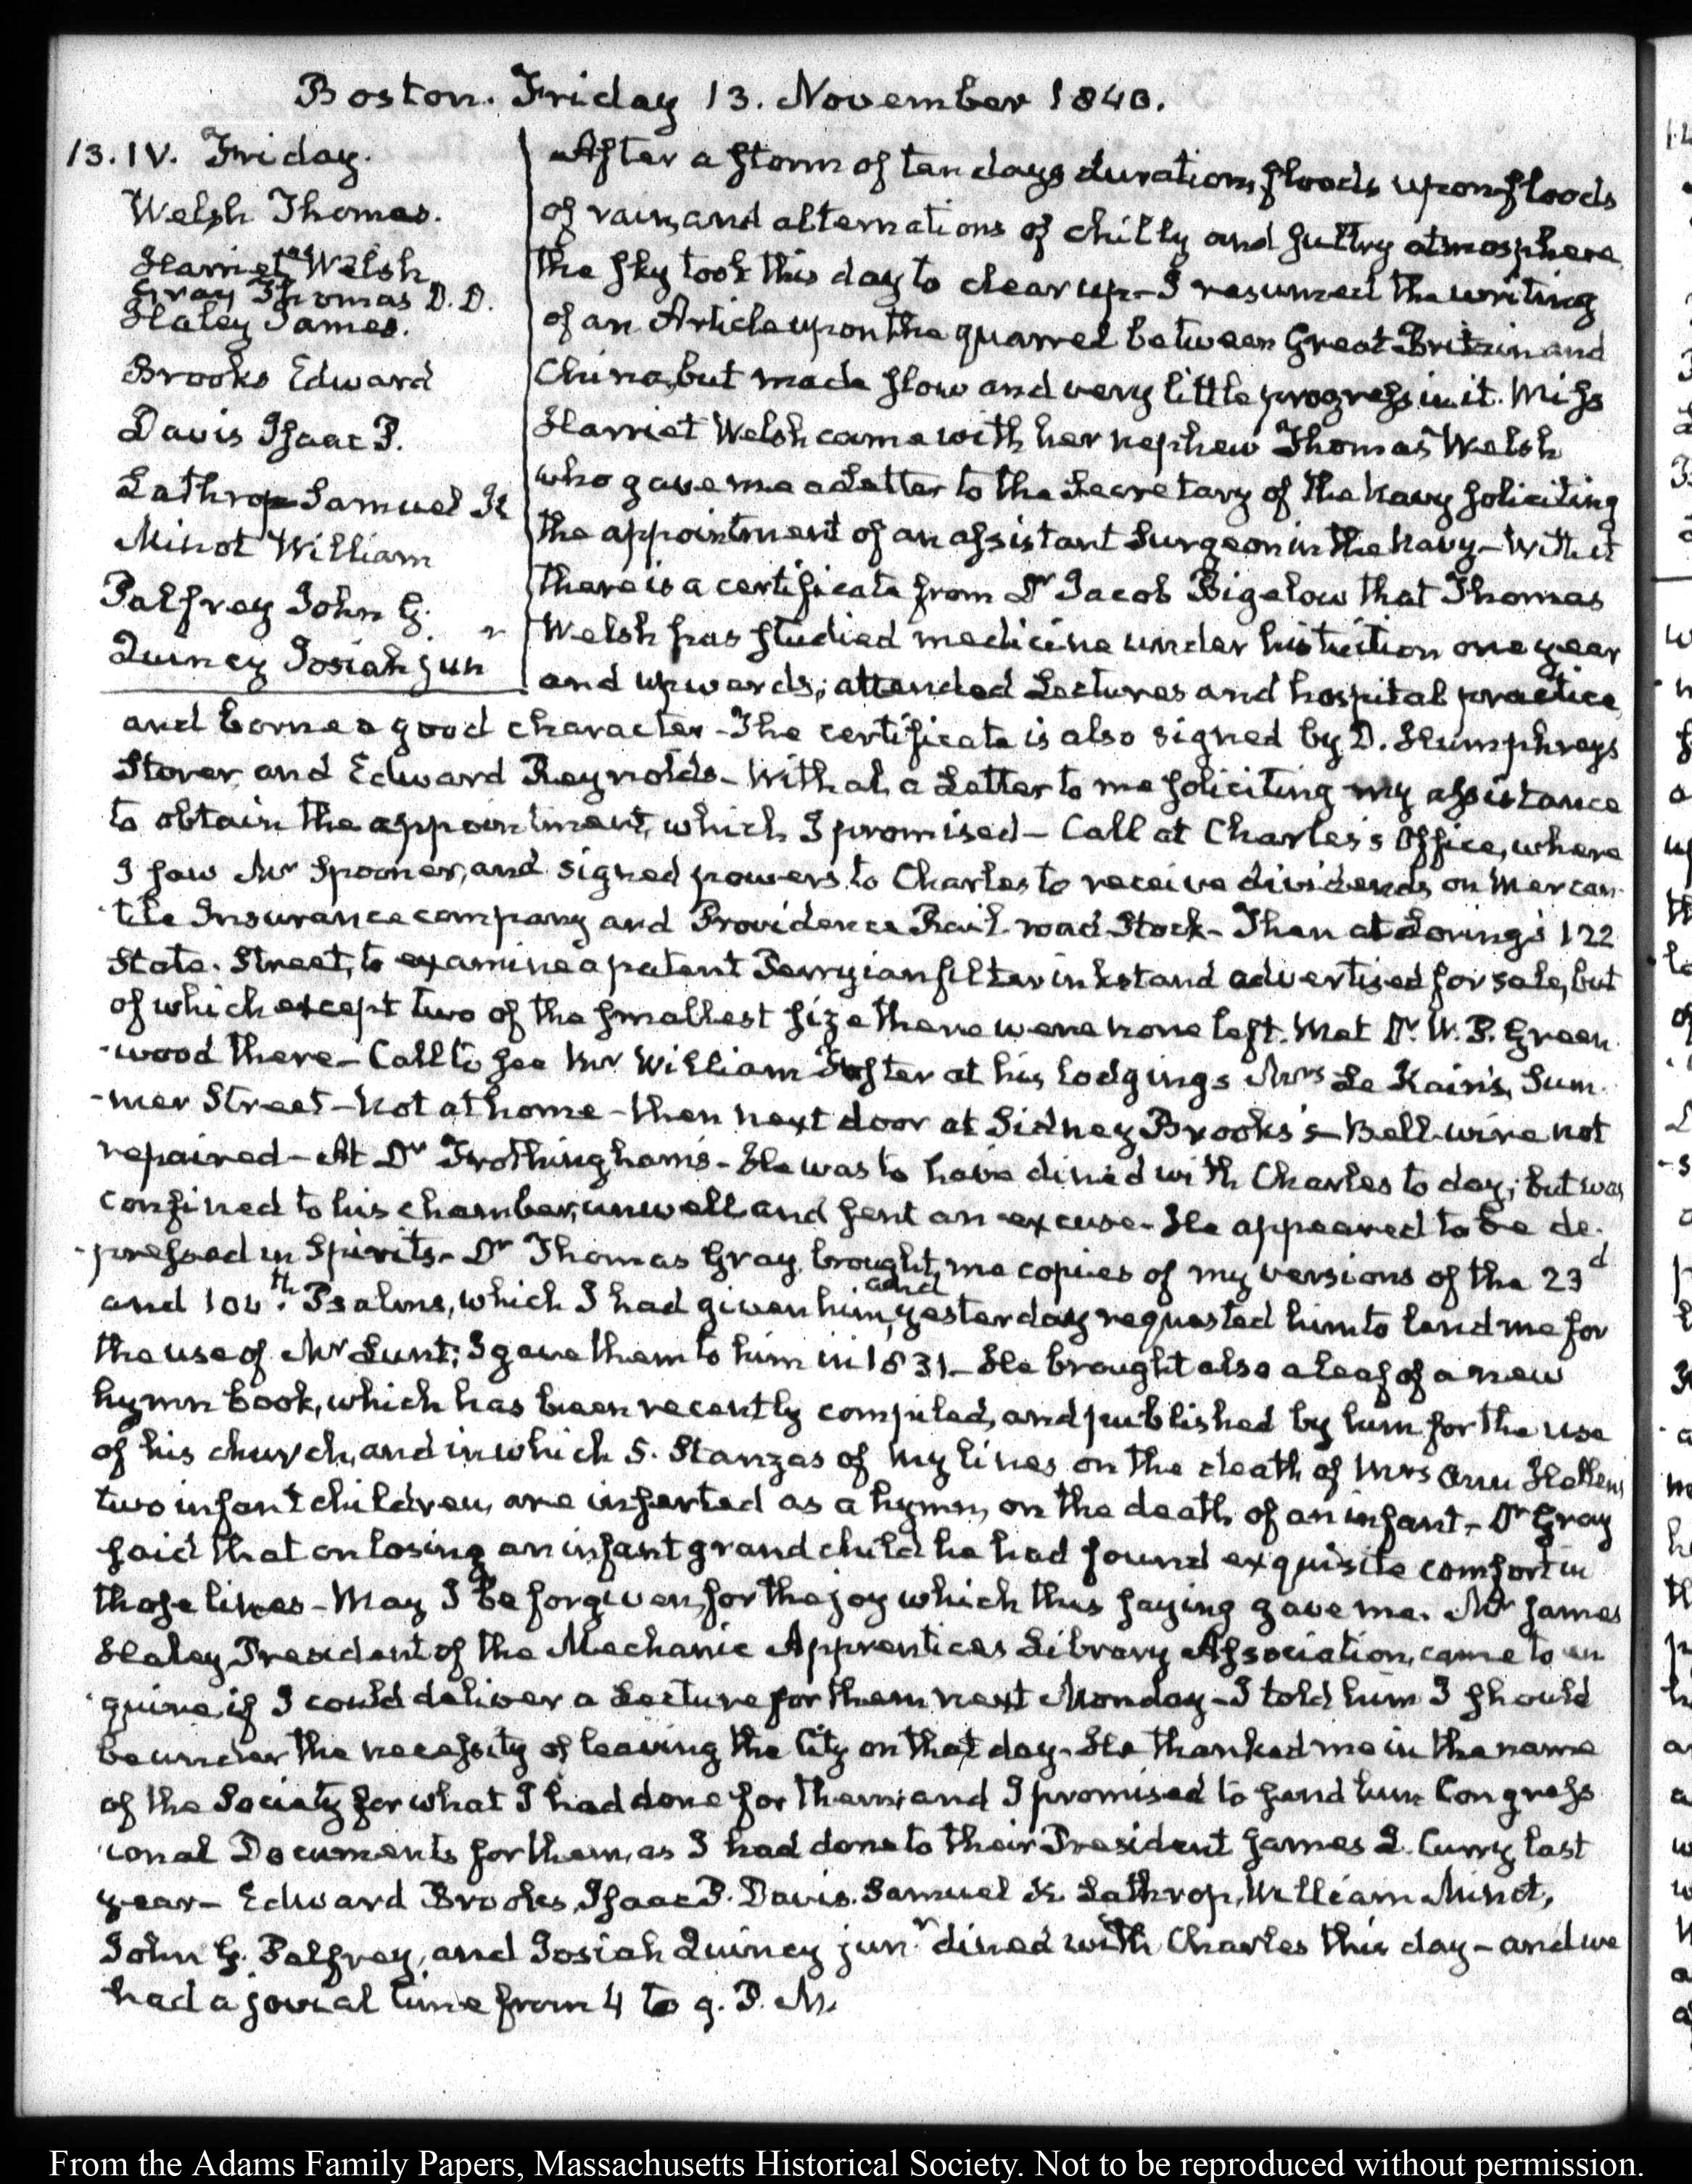 Boston. Friday 13. November 1840.
13. IV. Friday.
Welsh Thomas.
Harriet Welsh
Gray Thomas D.D.
Haley James.
Brooks Edward
Davis Isaac P.
Lathrop Samuel K
Minot William
Palfrey John G.
Quincy Josiah junr
After a storm of ten days duration, floods upon floods
of rain, and alternations of chilly and sultry atmosphere
the sky took this day to clear up – I resumed the writing
of an Article upon the quarrel between Great Britain and
China, but made slow and very little progress in it. Miss
Harriet Welsh came with her nephew Thomas Welsh
who gave me a Letter to the Secretary of the Navy soliciting
the appointment of an assistant Surgeon in the Navy – With it
there is a certificate from Dr Jacob Bigelow that Thomas
Welsh has studied medicine under his tuition one year
and upwards; attended Lectures and hospital practice
and borne a good character – The certificate is also signed by D. Humphreys
Storer, and Edward Reynolds – Withal, a Letter to me soliciting my assistance
to obtain the appointment, which I promised – Call at Charles's Office, where
I saw Mr Spooner, and signed powers to Charles to receive dividends, on Mercan-
-tile Insurance company and Providence Rail-road Stock – Then at Loring's 122
State Street, to examine a patent Perryian filter inkstand advertised for sale, but
of which except two of the smallest size there were none left. Met Dr. W. P. Green-
-wood there – Call to see Mr William Foster at his lodgings Mrs Le Kain's, Sum-
-mer Street – Not at home – then next door at Sidney Brooks's – Bell-wire not
repaired – At Dr Frothingham's – He was to have dined with Charles to day; but was
confined to his chamber, unwell and sent an excuse – He appeared to be de-
-pressed in Spirits – Dr Thomas Gray, brought, me copies of my versions of the 23d
and 104th. Psalms, which I had given him, and yesterday requested him to lend me for
the use of Mr Lunt; I gave them to him in 1831 – He brought also a leaf of a new
hymn book, which has been recently compiled, and published by him for the use
of his church, and in which 5. Stanzas of my lines on the death of Mrs Ann Hellen's
two infant children, are inserted as a hymn, on the death of an infant – Dr Gray
said that on losing an infant grandchild he had found exquisite comfort in
those lines – May I be forgiven, for the joy which this saying gave me. Mr James
Haley President of the Mechanic Apprentices Library Association, came to en-
-quire, if I could deliver a Lecture for them next Monday – I told him I should
be under the necessity of leaving the City on that day. He thanked me in the name
of the Society for what I had done for them; and I promised to send him Congress-
-ional Documents for them, as I had done to their President James L. Curry last
year – Edward Brooks, Isaac P. Davis. Samuel K. Lathrop, William Minot,
John G. Palfrey, and Josiah Quincy junr dined with Charles this day – and we
had a jovial time from 4 to 9. P. M.
From the Adams Family Papers, Massachusetts Historical Society. Not to be reproduced without permission.